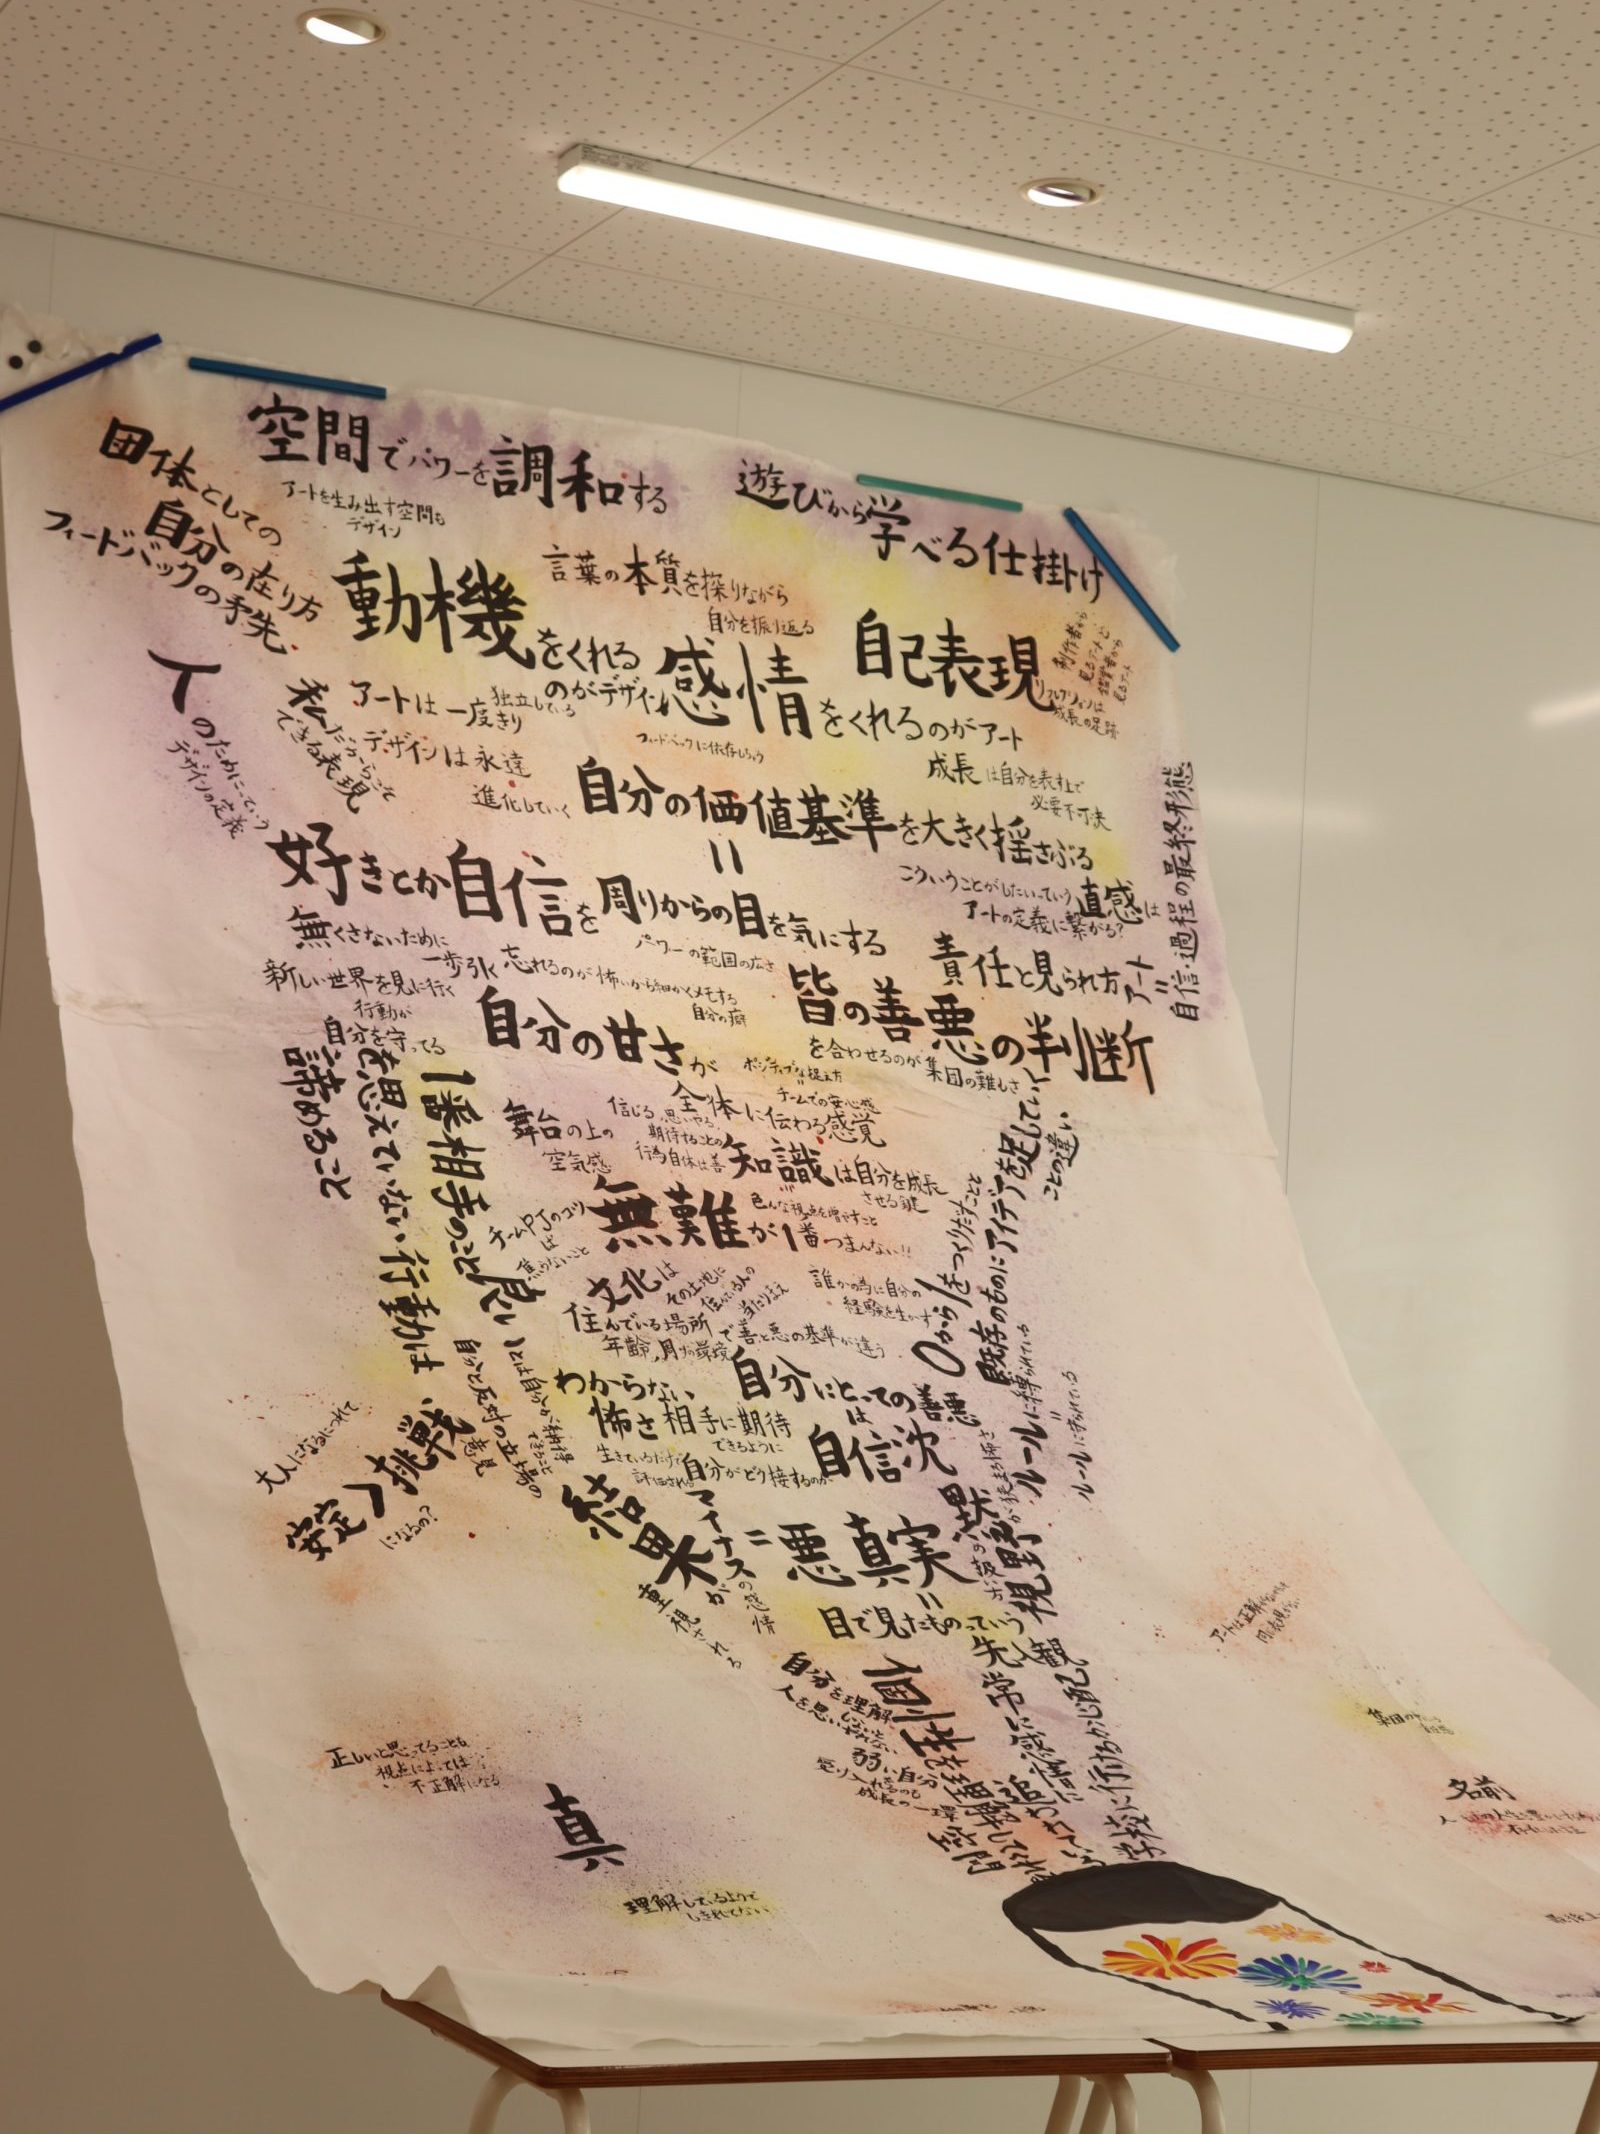 空間でパワーを調和する
アートを生み出す空間も
デザイン
団体としての
自分の在り方
フィードバックの矛先
遊びから学べる仕掛け
動機をくれる
のがデザイン
言葉の本質を探りながら
自分を振り返る
感情をくれるのがアート
自己表現
制作者から
見るアートと
鑑賞者から
見るアート
リフレクションは
成長の足跡
人のためにっていう
デザインの定義
私だからこそ
できる表現
アートは一度きり
独立している
デザインは永遠
進化していく
フィードバックに依存しちゃう
成長は自分を表す上で
必要不可決
自分の価値基準を大きく揺さぶる
=
周りからの目を気にする
好きとか自信を
無くさないために
一歩引く
新しい世界を見に行く
忘れるのが怖いから細かくメモする
自分の癖
パワーの範囲の広さ
こういうことがしたいっていう直感は
アートの定義に繋がる?
責任と見られ方
アート
=
自信・過程の最終形態
皆の善悪の判断
を合わせるのが集団の難しさ
行動が
自分を守ってる
自分の甘さが
全体に伝わる感覚
ポジティブな捉え方
=
チームでの安心感
諦めること
1番相手のこと
を思えていない行動は
舞台の上の
空気感
信じる、思いやる
期待することの
行為自体は善
知識は自分を成長
させる鍵
色んな視点を増やすこと
無難が1番つまんない!!
チームPJのコツ
は
焦らないこと
文化は
その土地に
住んでいる人の
当たりまえ
住んでいる場所
年齢、周りの環境で善と悪の基準が違う
誰かの為に自分の
経験を生かす
0から1をつくりだすことと
既存のものにアイデアを足していく
ことの違い
良いとは自分が納得
できること
自分と反対の立場の
意見
わからない
怖さ
自分にとっての善悪
は
自信過
相手に期待
できるように
自分がどう接するのか
生きているだけで
評価される
ルールに縛られている
=
ルールに守られている
大人になるにつれて
安定>挑戦
になるの?
結果が
重視される
マイナス=悪
の感情
真実
=
目で見たものっていう
先入観
視野が狭まる怖さ
常に感情に
追われている
学校に行けるか心配
自分を理解
しないと
人を思いやれない
弱い自分
受け入れるのも
成長の一環
個性
正しいと思ってることも
視点によっては
不正解になる
真
理解しているようで
しきれてない
名前